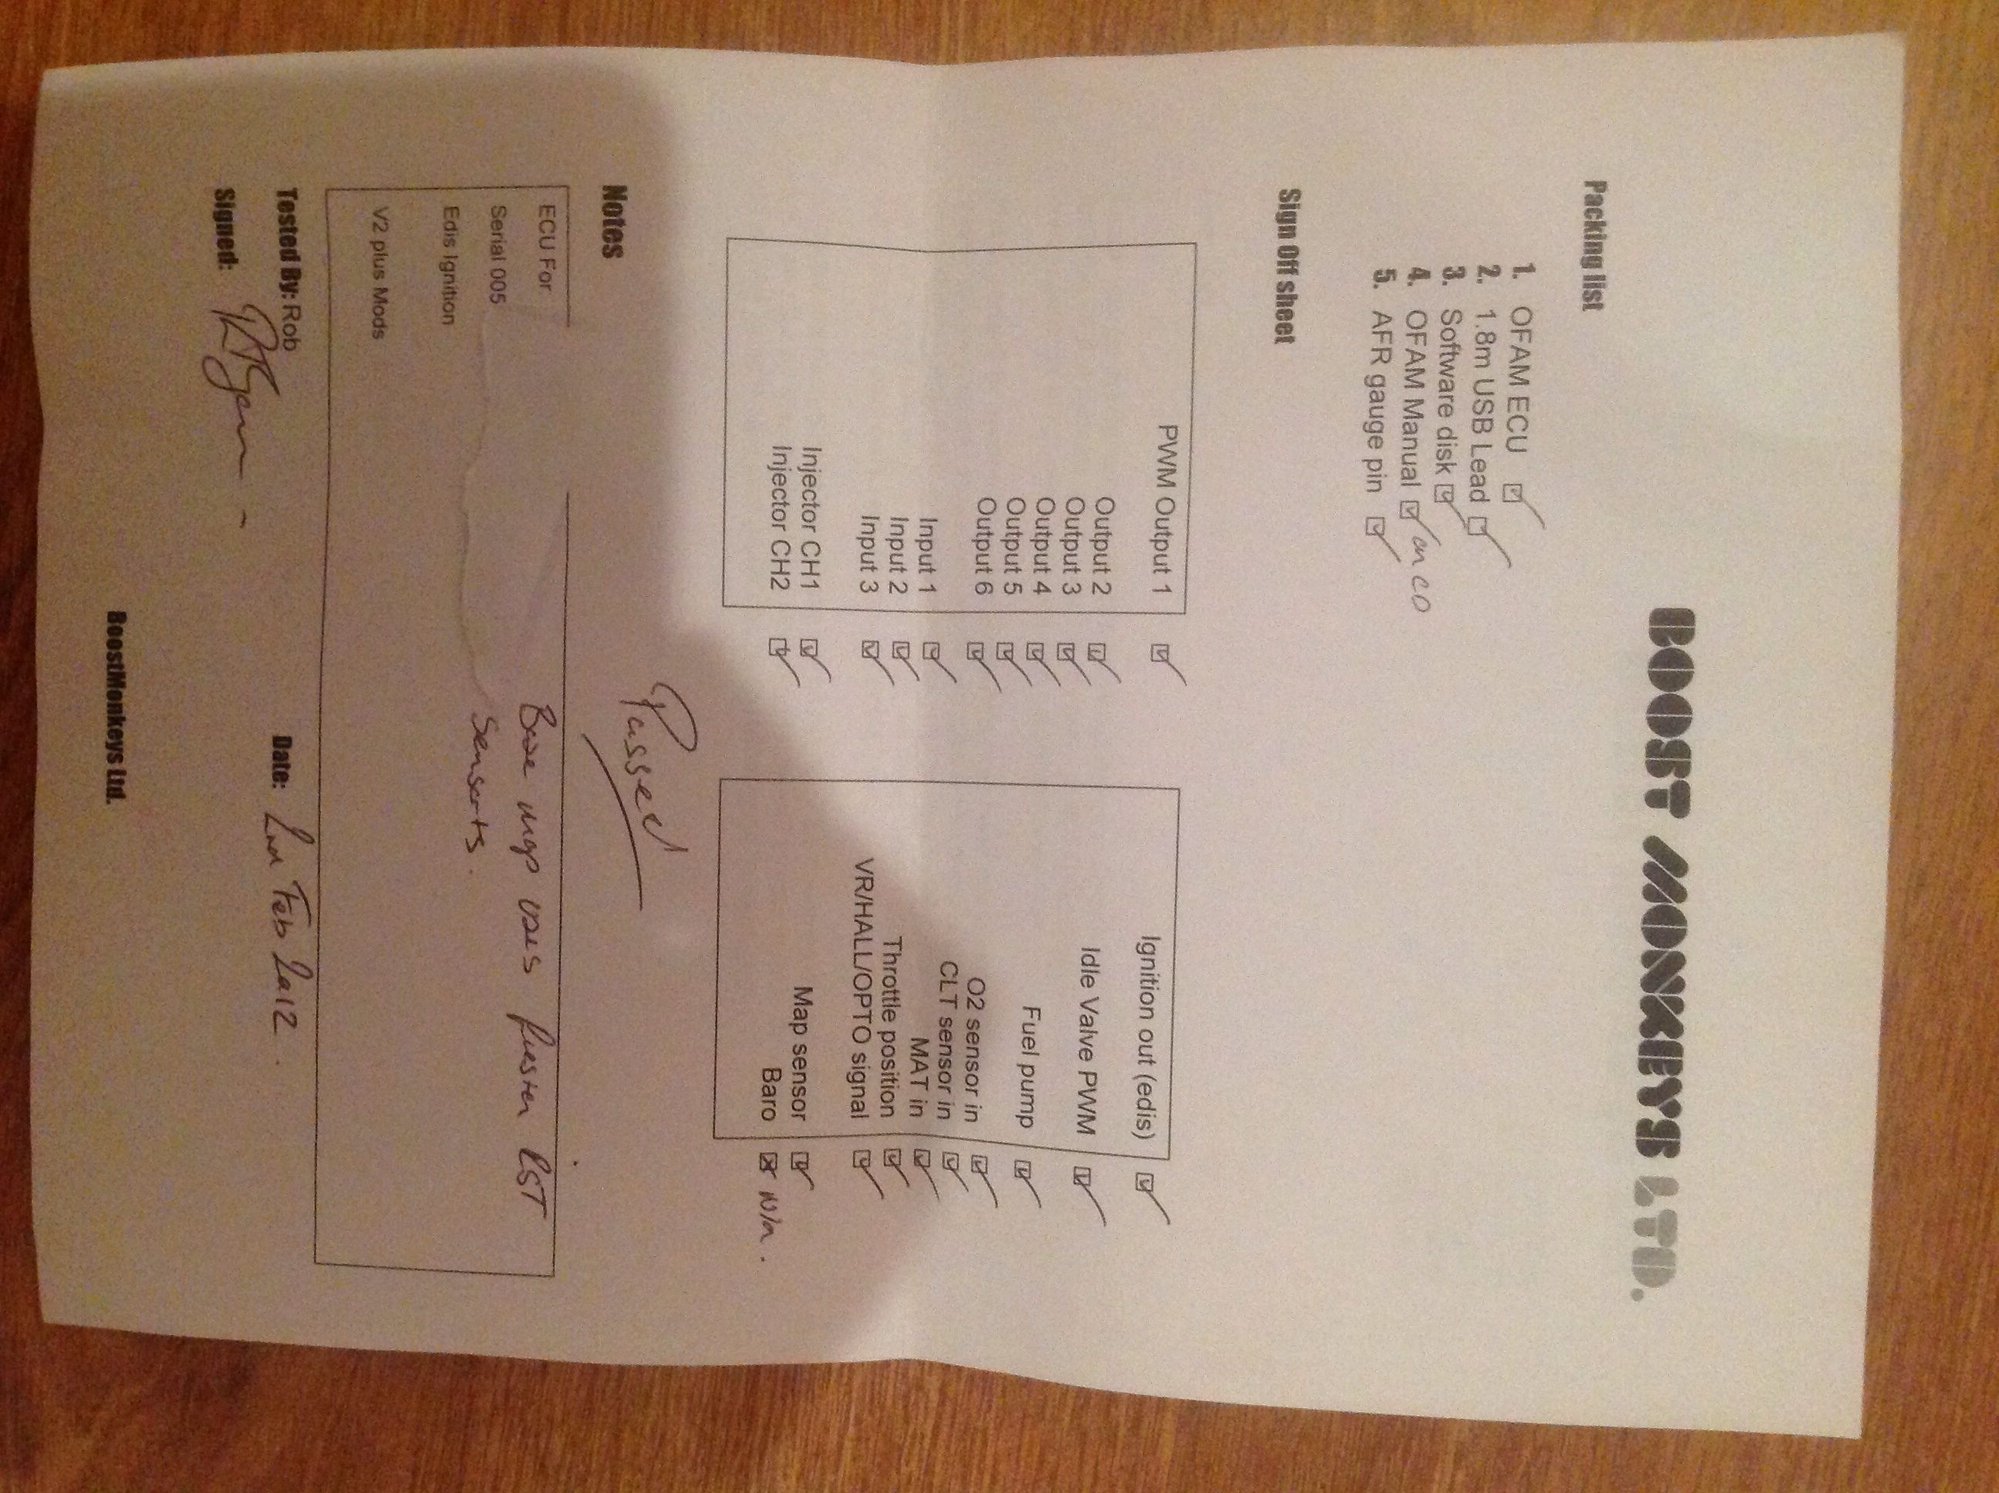 BOOST MONKEYS LTD.
Packing list
1. OFAM ECU
2. 1.8m USB Lead
3. Software disk
4. OFAM Manual on CD
5. AFR gauge pin
Sign Off sheet
PWM Output 1
Output 2
Output 3
Output 4
Output 5
Output 6
Input 1
Input 2
Input 3
Injector CH1
Injector CH2
Ignition out (edis)
Idle Valve PWM
Fuel pump
O2 sensor in
CLT sensor in
MAT in
Throttle position
VR/HALL/OPTO signal
Map sensor
Baro N/a.
Passed
Notes
ECU For
Serial 005
Edis Ignition
V2 plus Mods
Base map uses RST
Sensorts.
Tested By: Rob
Date: 2nd Feb 2012.
Signed:
BoostMonkeys Ltd.